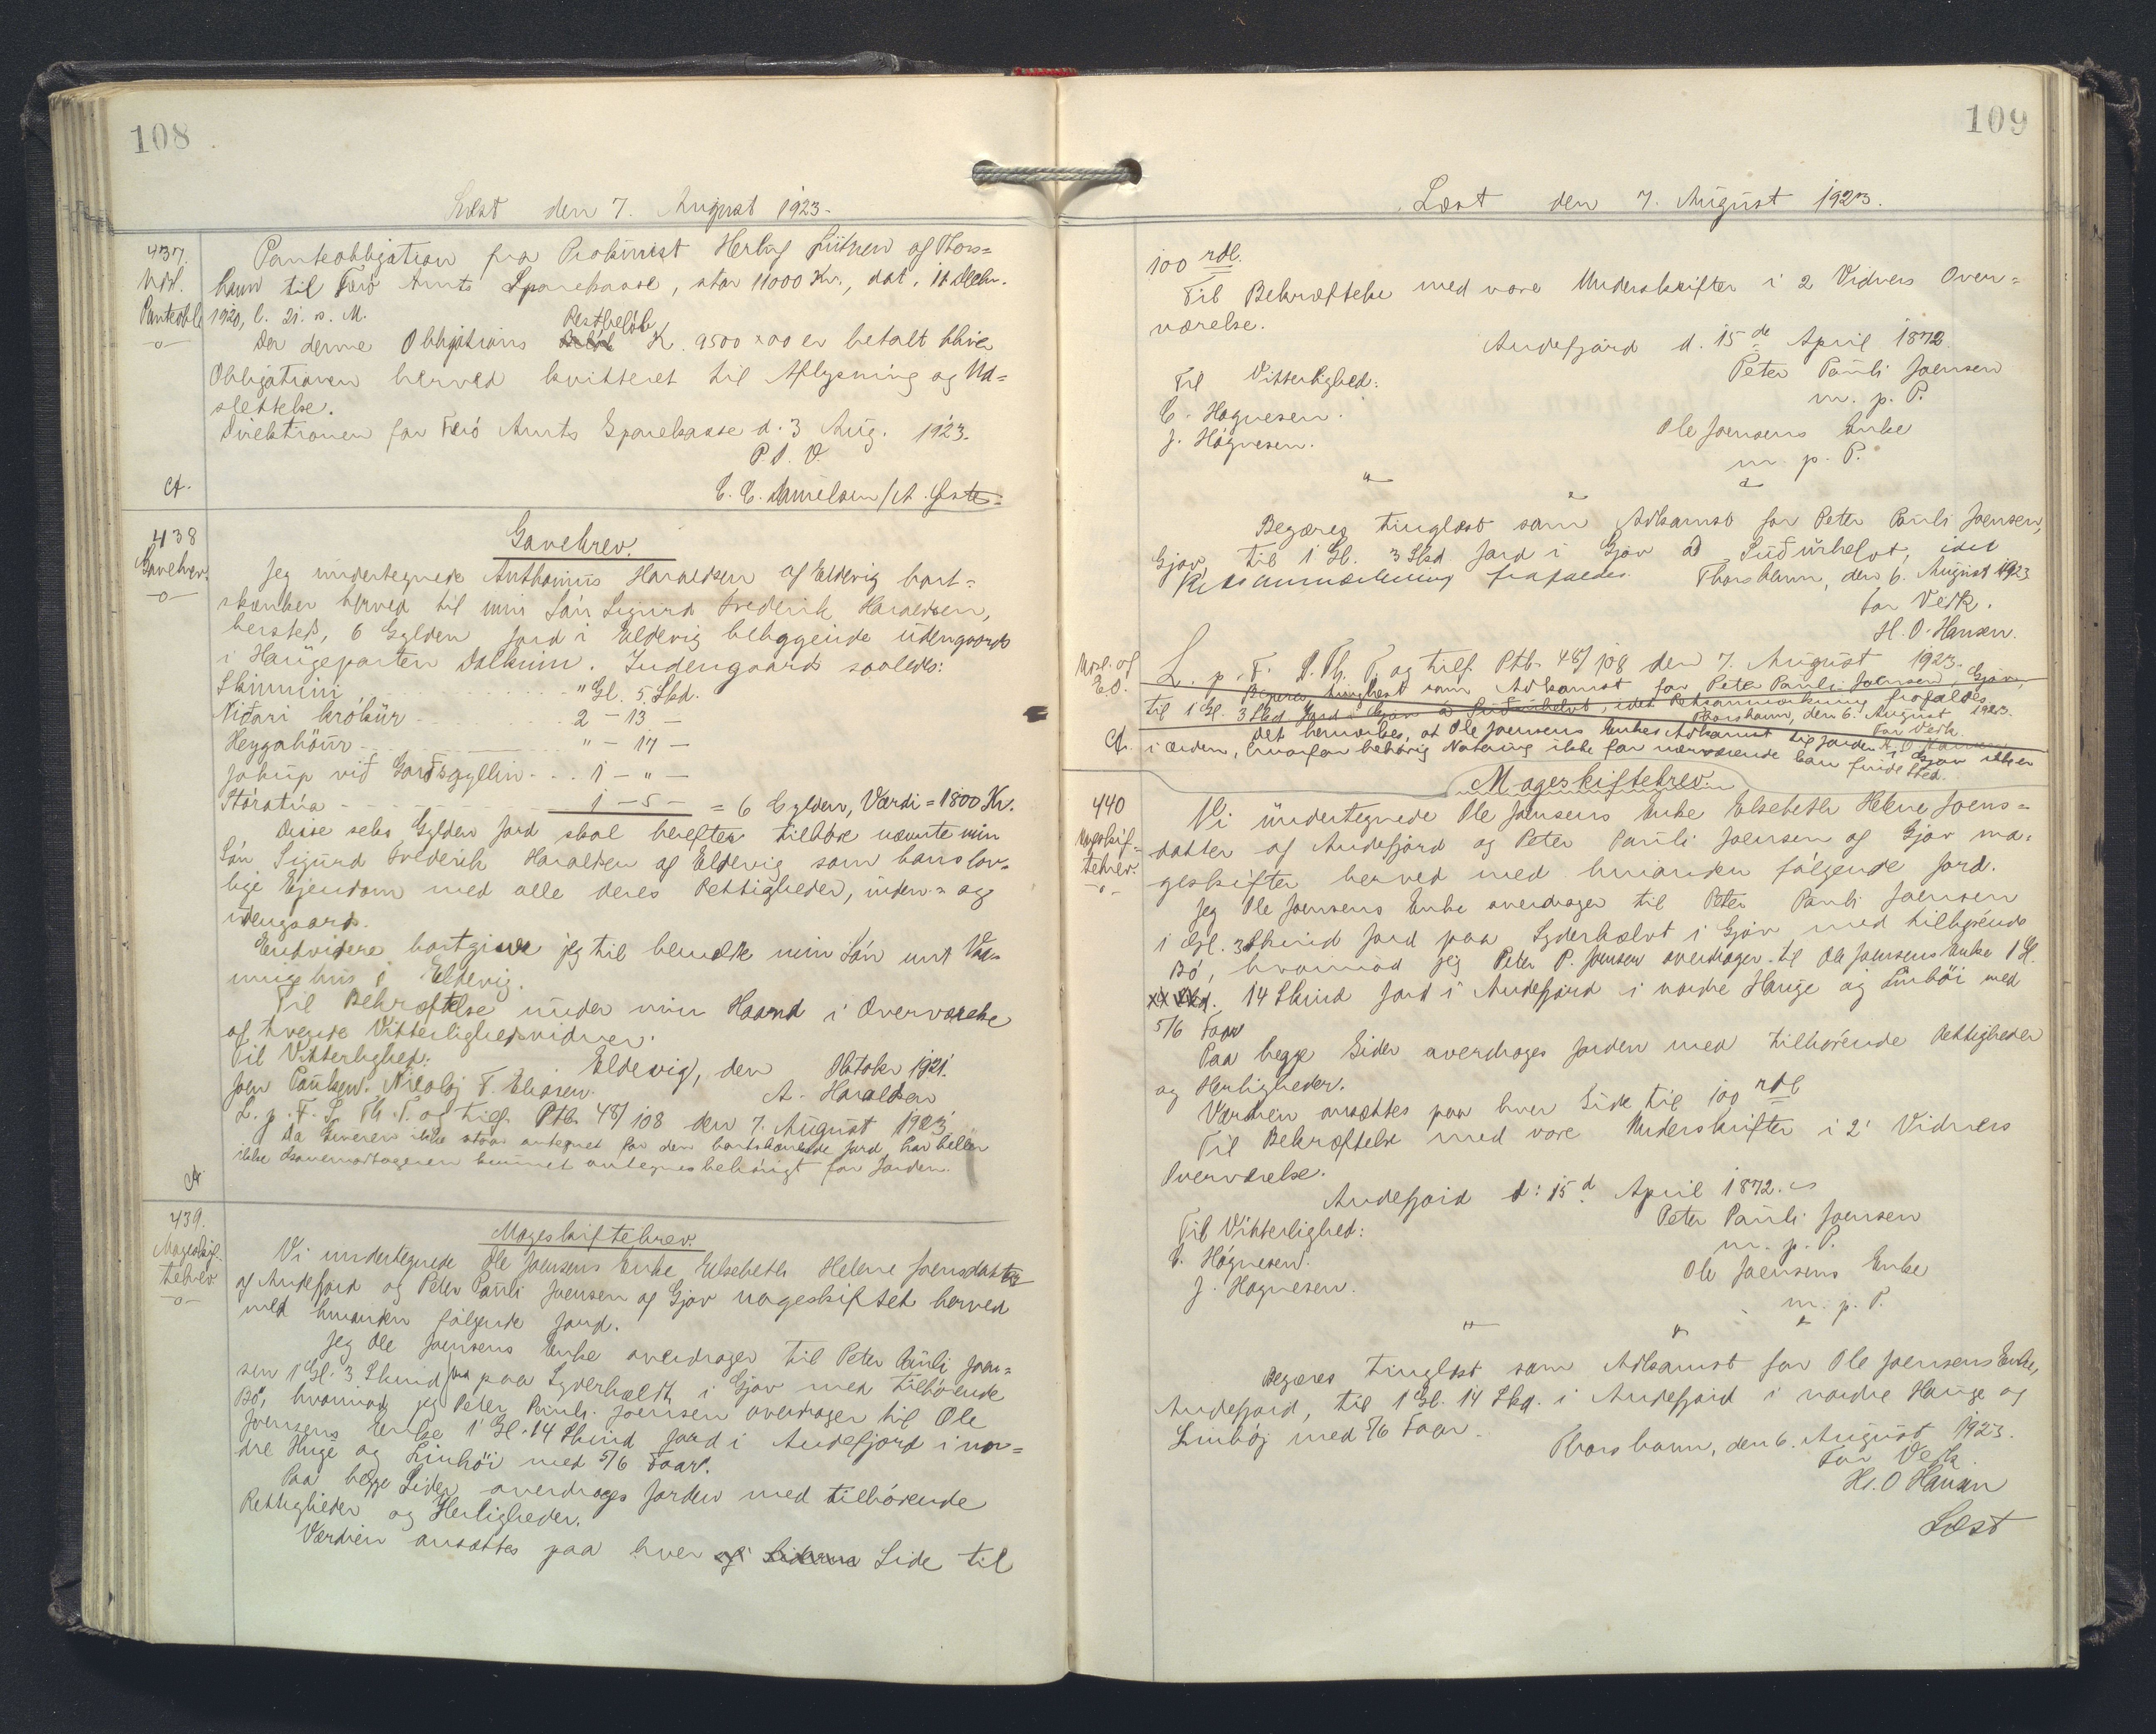 108
Læst den 7. August 1923.
437.
Udsl.
Panteobl
-o-
Panteobligation fra Prokurist Herluf Lützen af Thors=
havn til Færø Amts Sparekasse, stor 11000 Kr., dat. 18 Decbr.
1920, l. 21. s. M.
Da denne Obligations Restbeløb K. 9500 × 00 er betalt bliver
Obligationen herved kvitteret til Aflysning og Ud=
slettelse.
Direktionen for Færø Amts Sparekasse d. 3 Aug. 1923.
P. D. V.
C. C. Danielsen /
A.
438
Gavebrev.
-o-
Gavebrev.
Jeg undertegnede Anthonius Haraldsen af Eldevig bort=
skænker herved til min Søn Sigurd Frederik Haraldsen,
hersteds, 6 Gylden Jord i Eldevig beliggende udengaards
i Haugeparten Dalkinn. Indengaards saaledes:
Skinnini " Gl. 5 Skd.
Niðari krókur 2 - 13 -
Heygahönn " - 17 -
Jákup við Garðsgyllin 1 - " -
Stóratúa 1 - 5 - = 6 Gylden, Værdi = 1800 Kr.
Disse seks Gylden Jord skal herefter tilhøre nævnte min
Søn Sigurd Frederik Haraldsen af Eldevig som hans lov=
lige Ejendom med alle deres Rettigheder, inden= og
udengaards.
Endvidere bortgiver jeg til bemeldte min Søn mit Vaa=
ningshus i Eldevig.
Til Bekræftelse under min Haand i Overværelse
af tvende Vitterlighedsvidner.
Eldevig, den Oktober 1921.
Til Vitterlighed:
A. Haraldsen
Joen Paulsen. Nicolaj F. Eliasen.
L. p. F. S. Th. T. og tilf. Ptb. 48/108 den 7. August 1923.
Da Giveren ikke staar antegnet for den bortskænkede Jord, har heller
ikke Gavemodtageren kunnet antegnes behørigt for Jorden.
A.
439.
Mageskif-
tebrev
-o-
Mageskiftebrev.
Vi undertegnede Ole Joensens Enke Elsebeth Helene Joensdatter
af Andefjord og Peter Pauli Joensen af Gjov mageskiftet herved
med hinanden følgende Jord.
Jeg Ole Joensens Enke overdrager til Peter Pauli Joen=
sen 1 Gl. 3 Skind Jord paa Syderhælft i Gjov med tilhørende
Bø, hvorimod jeg Peter Pauli Joensen overdrager til Ole
Joensens Enke 1 Gl. 14 Skind Jord i Andefjord i nor=
dre Huge og Linhöi med 5/6 Faar.
Paa begge Sider overdrages Jorden med tilhørende
Rettigheder og Herligheder.
Værdien ansættes paa hver af Siderne Side til
109
Læst den 7. August 1923.
100 rdl.
Til Bekræftelse med vore Underskrifter i 2 Vidners Over=
værelse.
Andefjord d. 15de April 1872.
Til Vitterlighed:
Peter Pauli Joensen
m. p. P.
C. Høgnesen.
J. Høgnesen.
Ole Joensens Enke
m. p. P.
Begæres tinglæst som Adkomst for Peter Pauli Joensen,
Gjov, til 1 Gl. 3 Skd Jord i Gjov á Suðurhelvt, idet
Retsanmærkning frafaldes. Thorshavn, den 6. August 1923
for Vedk.
H. O. Hansen.
Udsl. af
E.O.
L. p. F. S. Th. T. og tilf. Ptb. 48/108 den 7. August 1923.
Begæres tinglæst som Adkomst for Peter Pauli Joensen, Gjov,
til 1 Gl. 3 Skd Jord i Gjov á Suðurhelvt, idet Retsanmærkning frafaldes.
Thorshavn, den 6. August 1923.
For Vedk.
H. O. Hansen
Det bemærkes, at Ole Joensens Enkes Adkomst til Jorden i Gjov ikke er
A. i Orden, hvorfor behørig Notering ikke for nærværende kan finde Sted.
440
Mageskif-
tebrev.
-o-
Mageskiftebrev.
Vi undertegnede Ole Joensens Enke Elsebeth Helene Joens=
datter af Andefjord og Peter Pauli Joensen af Gjov ma=
geskifter herved med hinanden følgende Jord.
Jeg Ole Joensens Enke overdrager til Peter Pauli Joensen
1 Gl. 3 Skind Jord paa Syderhælvt i Gjov med tilhørende
Bø, hvorimod jeg Peter P. Joensen overdrager til Ole Joensens Enke 1 Gl.
14 Skind Jord i Andefjord i nordre Hauge og Linhöi med
5/6 Faar
Paa begge Sider overdrages Jorden med tilhørende Rettigheder
og Herligheder.
Værdien ansættes paa hver Side til 100 rdl
Til Bekræftelse med vore Underskrifter i 2 Vidners
Overværelse.
Andefjord d: 15d April 1872.
Til Vitterlighed:
Peter Pauli Joensen
m. p. P.
C. Høgnesen.
J. Høgnesen.
Ole Joensens Enke
m. p. P.
Begæres tinglæst som Adkomst for Ole Joensens Enke,
Andefjord, til 1 Gl. 14 Skd. i Andefjord i nordre Hauge og
Linhøj med 5/6 Faar.
Thorshavn, den 6. August 1923.
For Vedk.
H. O Hansen
Læst